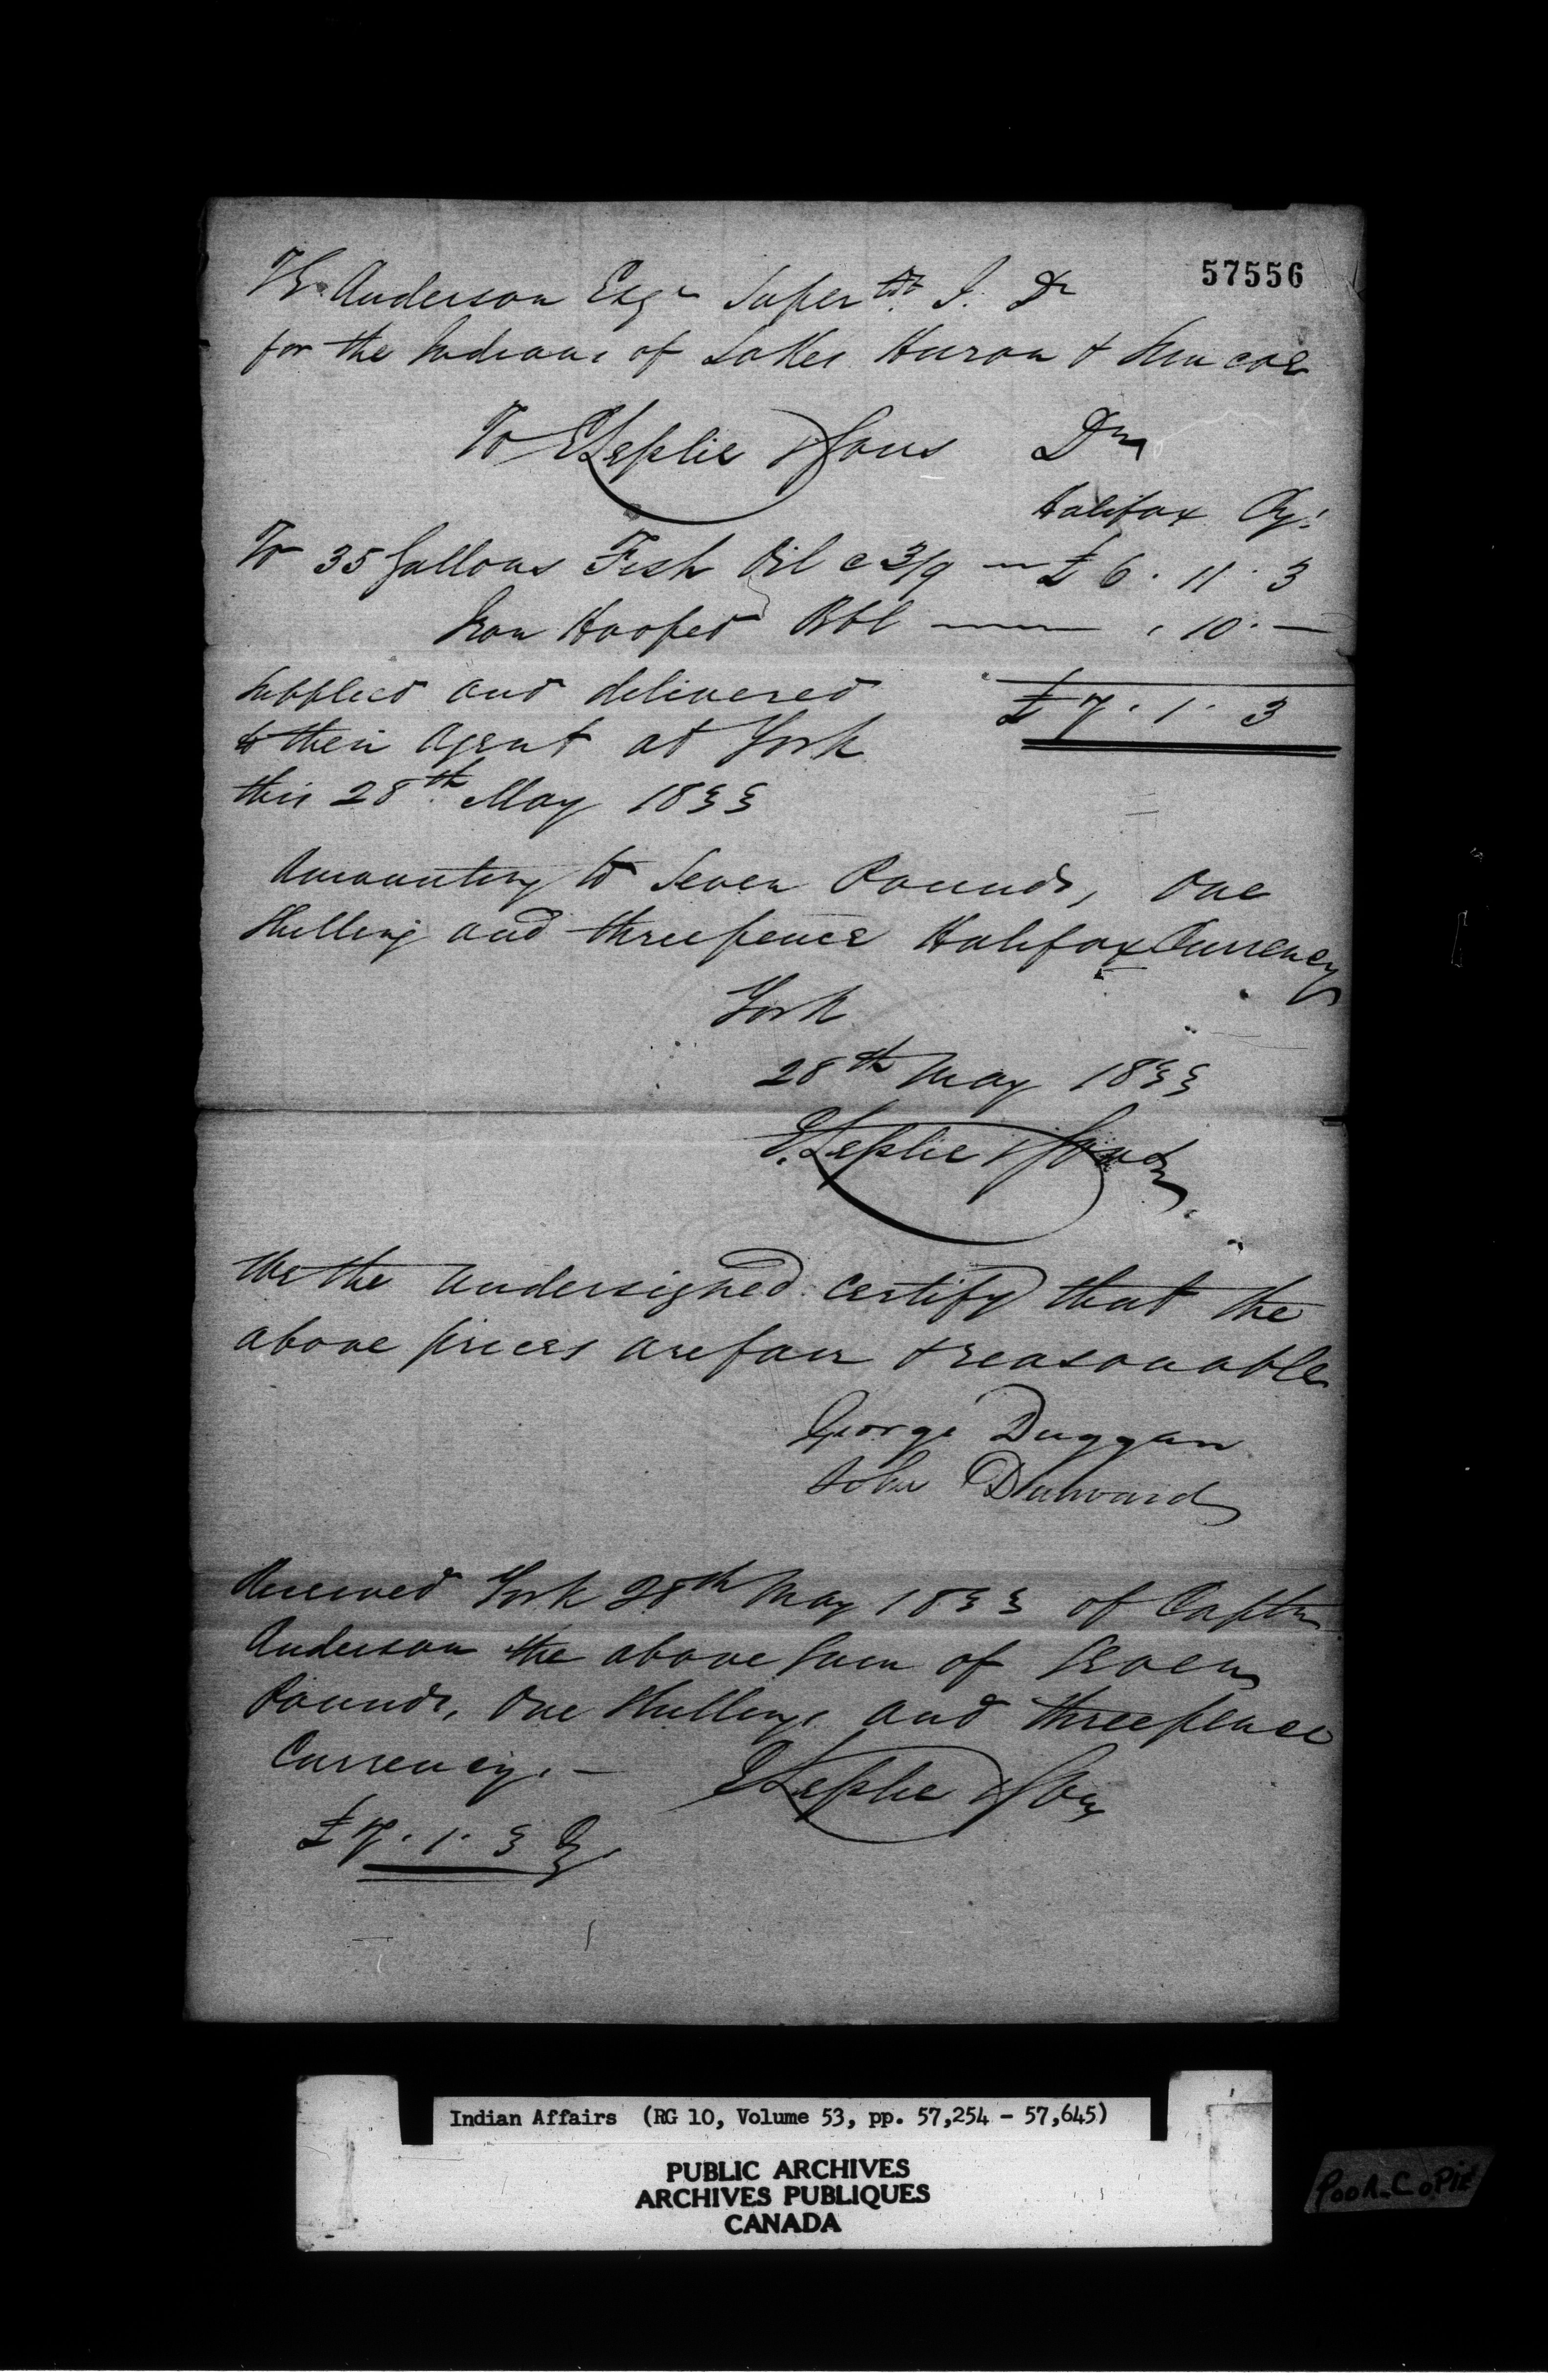 57556
T.G. Anderson Esqr Supertdt. I. Dt
for the Indians of Lakes Huron & Simcoe
To E Lesslie & Sons Dr
Halifax Cy.
To 35 Gallons Fish Oil @ 3/9 — £ 6 . 11 . 3
Iron Hooped Bbl — " 10 . —
Supplied and delivered £ 7 . 1 . 3
to their Agent at York
this 28th. May 1833
Amounting to Seven Pounds, One
Shilling and threepence Halifax Currency
York
28th May 1833
E. Lesslie & Sons
We the undersigned certify that the
above prices are fair & reasonable
George Duggan
John
Received York 28th May 1833 of Captn
Anderson the above Sum of Seven
Pounds, One Shilling, and threepence
Currency. —
E Lesslie & Sons
£ 7 . 1 . 3 Cy.
Indian Affairs (RG 10, Volume 53, pp. 57,254 - 57,645)
PUBLIC ARCHIVES
ARCHIVES PUBLIQUES
CANADA
POOR COPIE